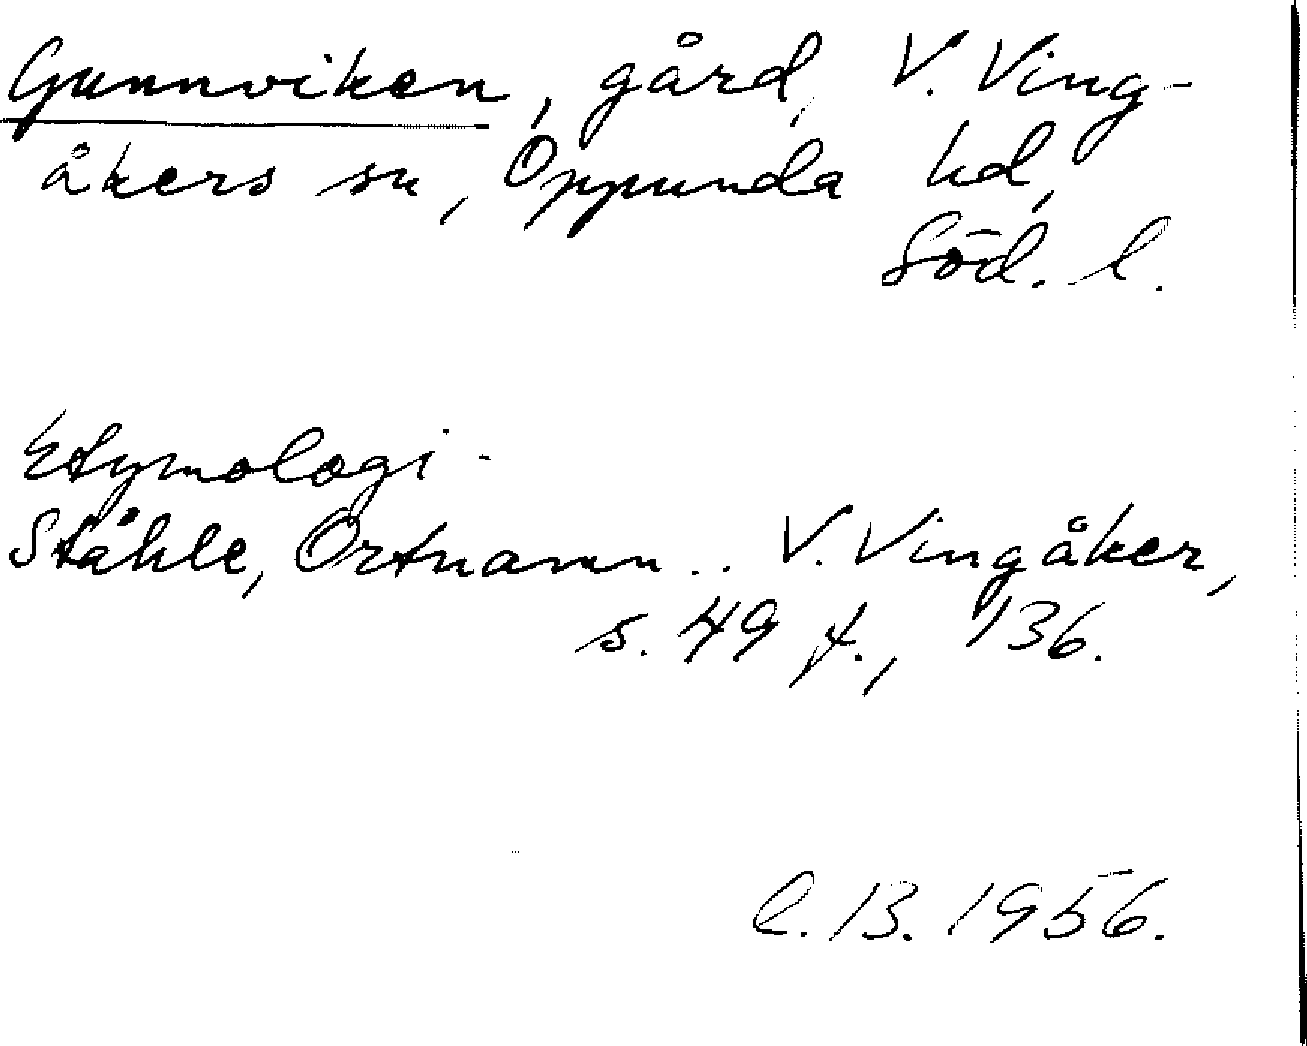 Gunnviken, gård, V. Ving-
åkers sn, Oppunda hd,
Söd. l.
Etymologi.
Ståhle, Ortnamn .. V. Vingåker,
s. 49 f., 136.
C. B. 1956.